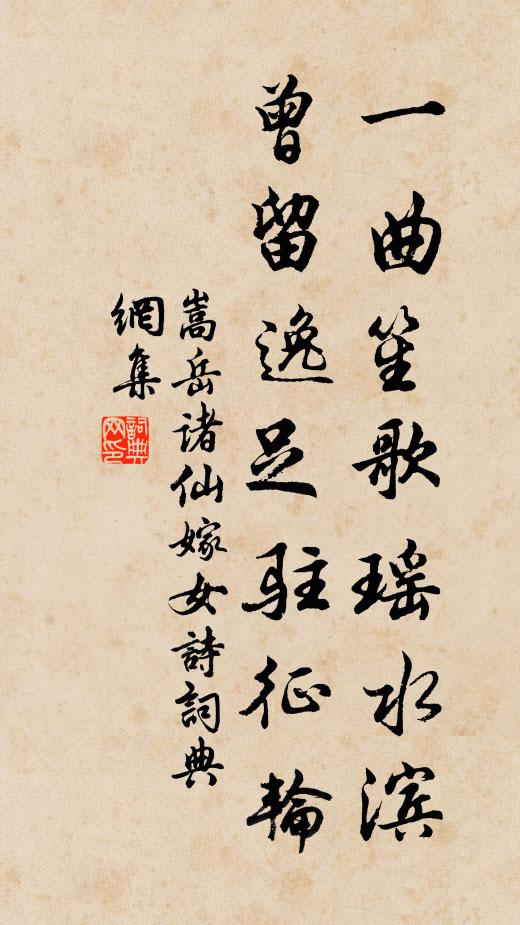 一曲笙歌瑶水滨
曾留逸足驻征輪
嵩岳诸仙嫁女詩詞典
網集
詞典网印